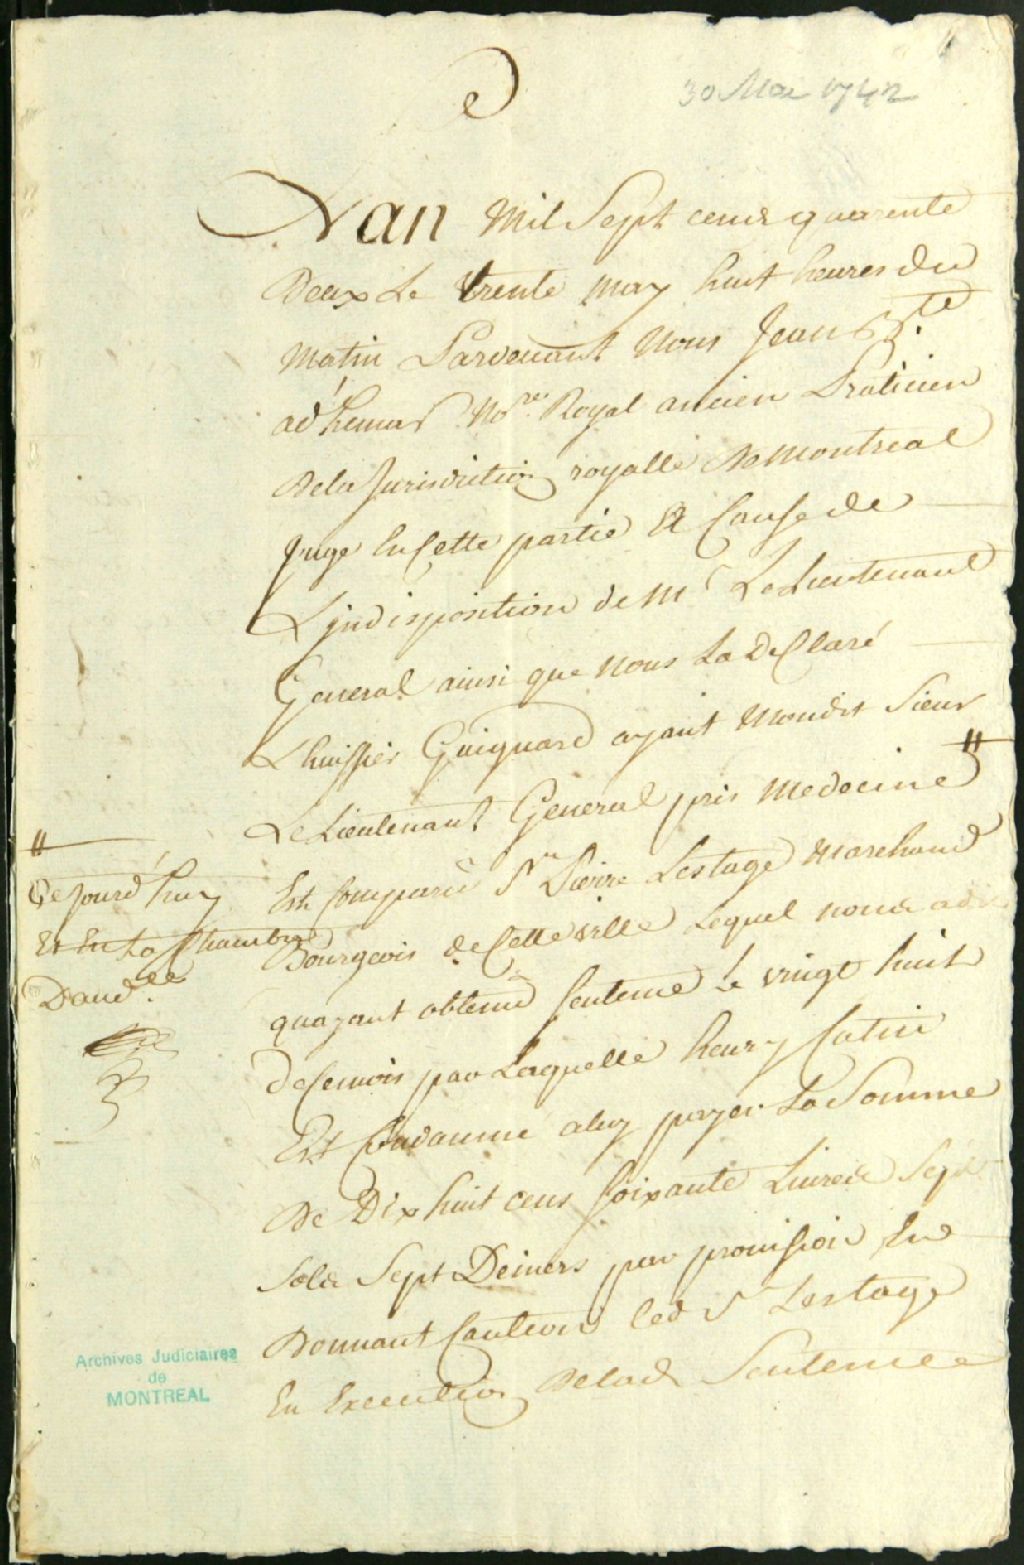 30 Mai 1742
Lan Mil Sept cens quarente
Deux Le trente may huit heures du
Matin Pardevant Nous Jean Bte
adhemar Nore Royal ancien Praticien
dela Jurisdiction royalle de Montreal
Juge En Cette partie Et Cause de
L'jndisposition de Mr Le Lieutenant
General ainsi que nous La Declaré
Lhuissier Guiguard ayant Mondit Sieur
Le Lieutenant General pris Medecine //
Est Comparu Sr Pierre Lestage Marchand
Bourgeois de Cette ville Lequel nous a dit
quayant obtenu Sentence Le vingt huit
de Cemois par Laquelle henry Catin
Est Condamné aluy payer La Somme
De Dix huit cens soixante Livres Sept
Sols Sept Deniers par provision En
Donnant Caution led Sr Lestage
En Execution Delad Sentence
//
Ce jourd'huy
Et En La Chambre
Daudce
Archives Judiciaires
de
MONTREAL